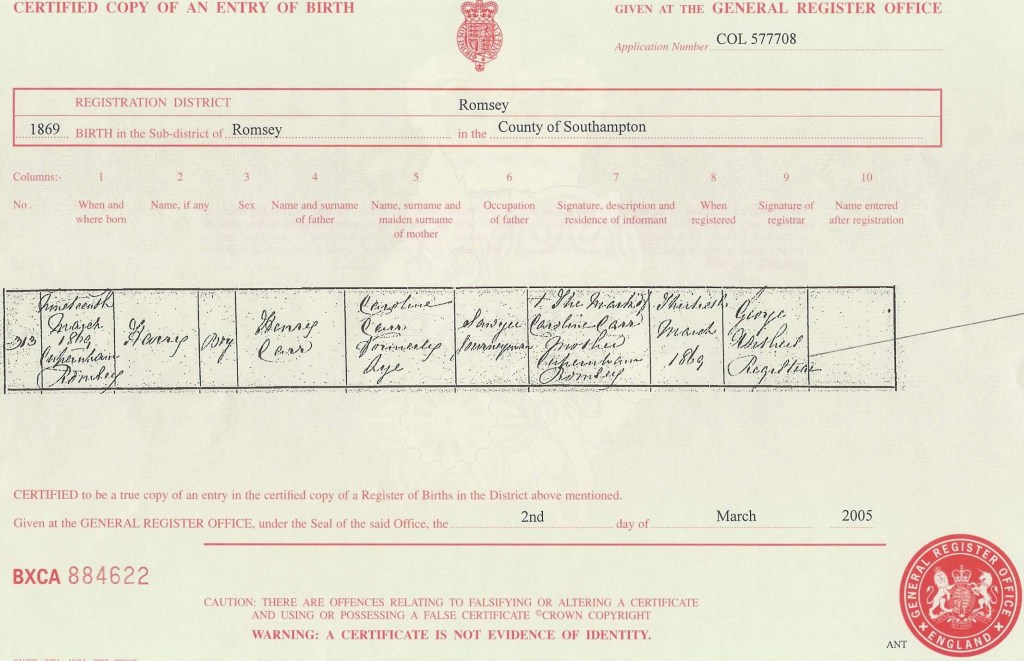 CERTIFIED COPY OF AN ENTRY OF BIRTH
GIVEN AT THE GENERAL REGISTER OFFICE
Application Number COL 577708
REGISTRATION DISTRICT Romsey
1869 BIRTH in the Sub-district of Romsey in the County of Southampton
Columns:- 1 2 3 4 5 6 7 8 9 10
No. When and where born
Name, if any
Sex
Name and surname of father
Name, surname and maiden surname of mother
Occupation of father
Signature, description and residence of informant
When registered
Signature of registrar
Name entered after registration
313
Nineteenth
March
1869
Cupernham
Romsey
Harris
Boy
Henry
Carr
Caroline
Carr
Formerly
Sawyer
Journeyman
+ The Mark of
Caroline Carr
Mother
Cupernham
Romsey
Thirtieth
March
1869
George
Registrar
CERTIFIED to be a true copy of an entry in the certified copy of a Register of Births in the District above mentioned.
Given at the GENERAL REGISTER OFFICE, under the Seal of the said Office, the 2nd day of March 2005
BXCA 884622
CAUTION: THERE ARE OFFENCES RELATING TO FALSIFYING OR ALTERING A CERTIFICATE
AND USING OR POSSESSING A FALSE CERTIFICATE ©CROWN COPYRIGHT
WARNING: A CERTIFICATE IS NOT EVIDENCE OF IDENTITY.
GENERAL REGISTER OFFICE
ENGLAND
ANT